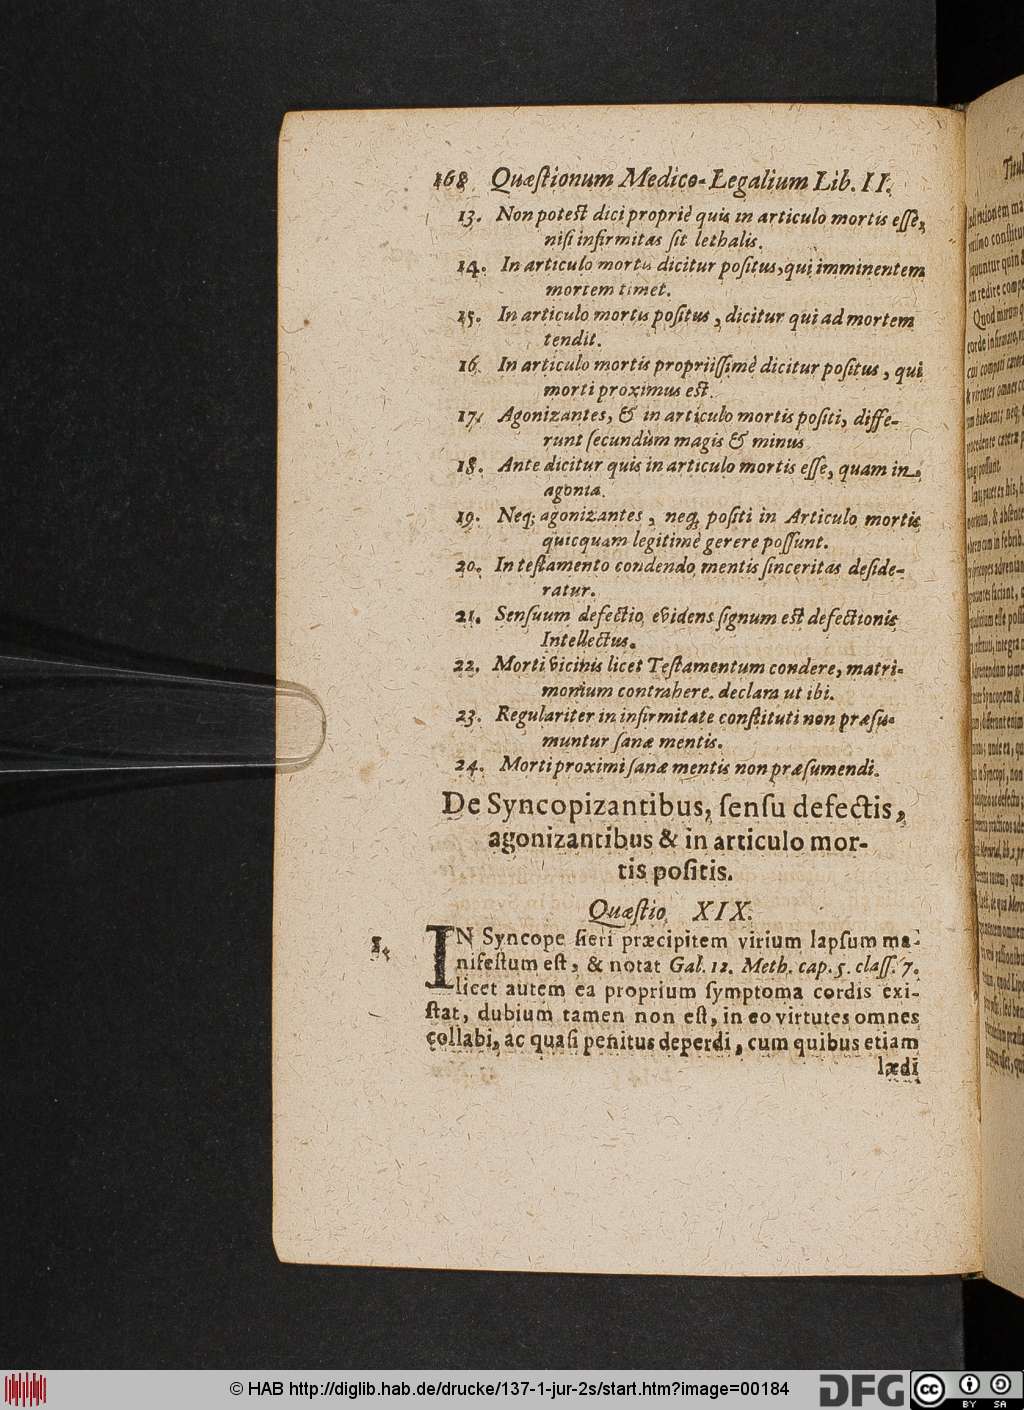 168 Quæſtionum Medico-Legalium Lib. II.
13. Non poteſt dici propriè quis in articulo mortis eſſe,
niſi infirmitas ſit lethalis.
14. In articulo mortis dicitur poſitus, qui imminentem
mortem timet.
15. In articulo mortis poſitus, dicitur qui ad mortem
tendit.
16. In articulo mortis propriiſſimè dicitur poſitus, qui
morti proximus eſt.
17. Agonizantes, & in articulo mortis poſiti, diffe-
runt ſecundùm magis & minus
18. Ante dicitur quis in articulo mortis eſſe, quam in
agonia.
19. Neq; agonizantes, neq; poſiti in Articulo mortis
quicquam legitimè gerere poſſunt.
20. In teſtamento condendo mentis ſinceritas deſide-
ratur.
21. Senſuum defectio evidens ſignum eſt defectionis
Intellectus.
22. Morti vicinis licet Teſtamentum condere, matri-
monium contrahere. declara ut ibi.
23. Regulariter in infirmitate conſtituti non præſu-
muntur ſanæ mentis.
24. Morti proximi ſanæ mentis non præſumendi.
De Syncopizantibus, ſenſu defectis,
agonizantibus & in articulo mor-
tis poſitis.
Quæſtio XIX.
1. IN Syncope fieri præcipitem virium lapſum ma-
nifeſtum eſt, & notat Gal. 12. Meth. cap. 5. claſſ. 7.
licet autem ea proprium ſymptoma cordis exi-
ſtat, dubium tamen non eſt, in eo virtutes omnes
collabi, ac quaſi penitus deperdi, cum quibus etiam
lædi
© HAB http://diglib.hab.de/drucke/137-1-jur-2s/start.htm?image=00184
DFG
cc
BY SA